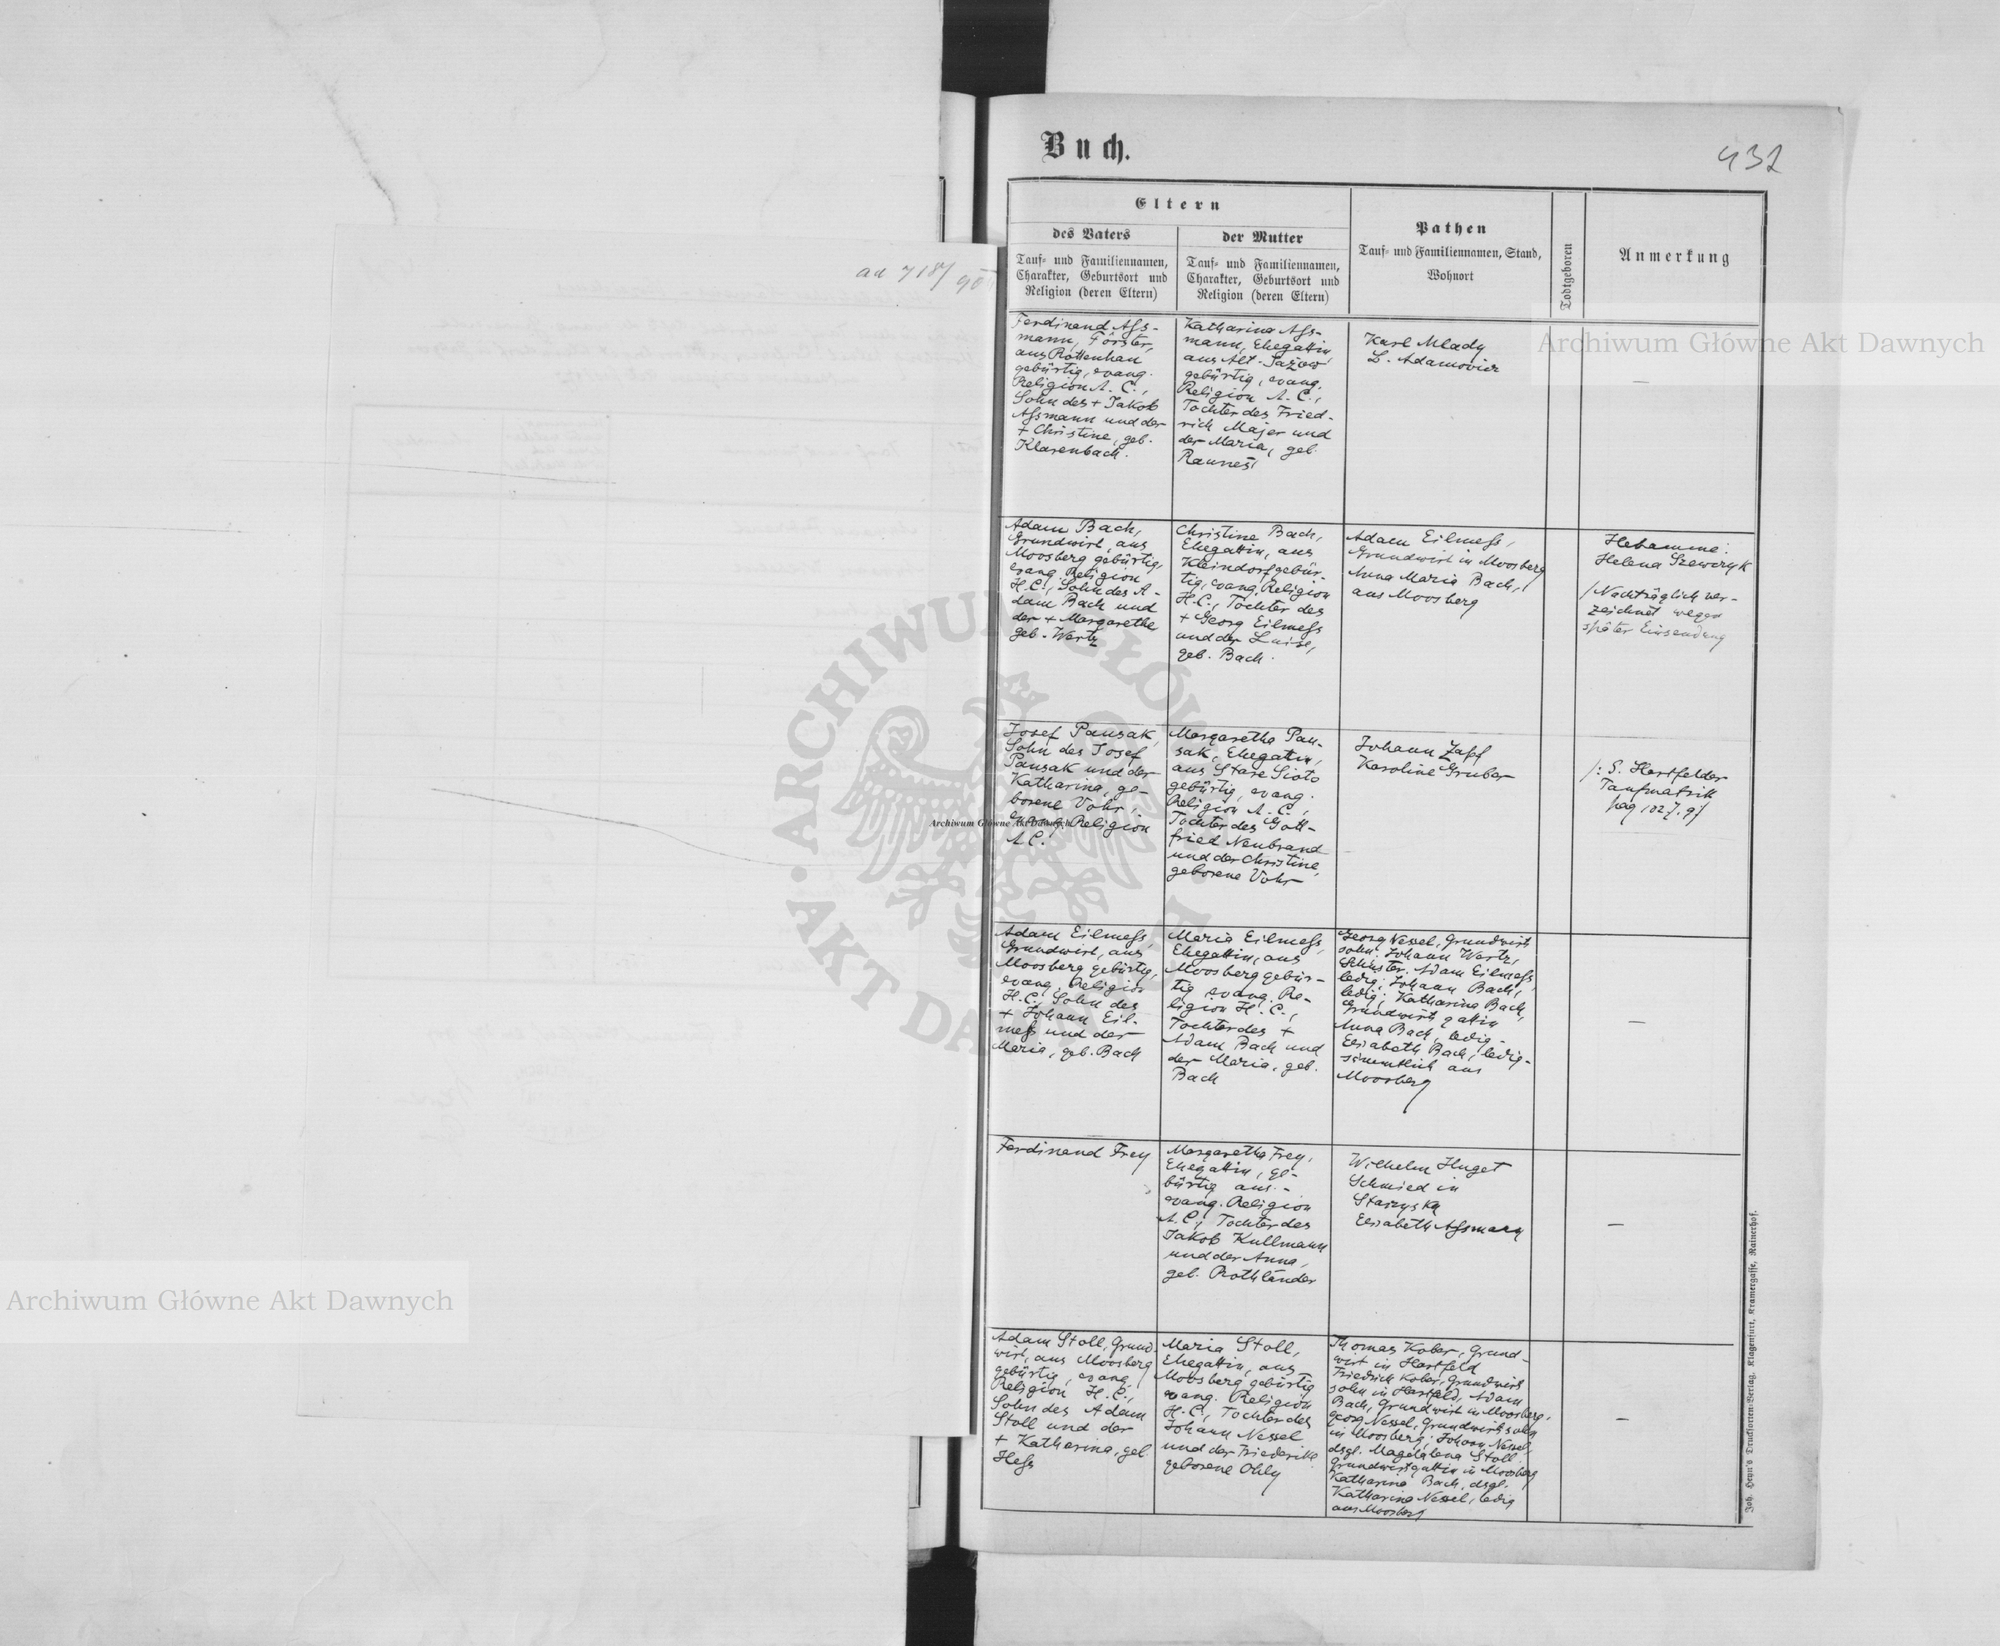 Buch.
432
ad 718/90
Eltern
des Vaters
Tauf= und Familiennamen,
Charakter, Geburtsort und
Religion (deren Eltern)
der Mutter
Tauf= und Familiennamen,
Charakter, Geburtsort und
Religion (deren Eltern)
Pathen
Tauf= und Familiennamen, Stand,
Wohnort
Todtgeboren
Anmerkung
Ferdinand Ass-
mann, Förster,
aus Rottenhan
gebürtig, evang.
Religion A. C.,
Sohn des + Jakob
Assmann und der
+ Christine, geb.
Klarenbach.
Katharina Ass-
mann, Ehegattin,
aus Alt-Jażow
gebürtig, evang.
Religion A. C.,
Tochter des Fried-
rich Majer und
der Maria, geb.
Karl Mlady
L. Adamovicz
—
Adam Bach,
Grundwirt, aus
Moosberg gebürtig,
evang. Religion
H.C., Sohn des A-
dam Bach und
der + Margarethe
geb. Wertz
Christine Bach,
Ehegattin, aus
Kleindorf gebür-
tig, evang. Religion
H.C., Tochter des
+ Georg Eilmess
und der Luise,
geb. Bach.
Adam Eilmess,
Grundwirt in Moosberg
Anna Maria Bach,
aus Moosberg
Hebamme:
Helena Szewczyk
/Nachträglich ver-
zeichnet wegen
später Einsendung
Josef Pausak,
Sohn des Josef
Pausak und der
Katharina, ge-
borene Vohr,
evang. Religion
A.C.
Margaretha Pau-
sak, Ehegattin,
aus Stare Sioło
gebürtig, evang.
Religion A. C.,
Tochter des Gott-
fried Neubrand
und der Christine,
geborene Vohr
Johann Zapf
Karoline Gruber
/: S. Hartfelder
Taufmatrik
pag
Adam Eilmess,
Grundwirt, aus
Moosberg gebürtig,
evang. Religion
H.C., Sohn des
+ Johann Eil-
mess und der
Maria, geb. Bach
Maria Eilmess,
Ehegattin, aus
Moosberg gebür-
tig, evang. Re-
ligion H.C.,
Tochter des +
Adam Bach und
der Maria, geb.
Bach
Georg Nessel, Grundwirts
sohn; Johann Wertz,
Schuster. Adam Eilmess,
ledig; Johann Bach,
ledig; Katharina Bach,
Grundwirts gattin
Anna Bach, ledig-
Elisabeth Bach, ledig-
sämmtlich aus
Moosberg
—
Ferdinand Frey
Margaretha Frey,
Ehegattin, ge-
bürtig aus -
evang. Religion
A.C., Tochter des
Jakob Kullmann
und der Anna,
geb. Rothländer
Wilhelm Huget
Schmied in
Starzyska
Elisabeth Assmann
—
Adam Stoll, Grund-
wirt, aus Moosberg
gebürtig, evang.
Religion H.C.,
Sohn des Adam
Stoll und der
+ Katharina, geb.
Hess
Maria Stoll,
Ehegattin, aus
Moosberg gebürtig
evang. Religion
H.C., Tochter des
Johann Nessel
und der Friederike
geborene Ohly
Thomas Kober, Grund-
wirt in Hartfeld
Friedrich Kober, Grundwirts
sohn in Hartfeld, Adam
Bach, Grundwirt in Moosberg,
Georg Nessel, Grundwirtssohn
in Moosberg; Johann Nessel,
dsgl. Magdalena Stoll
Grundwirtsgattin in Moosberg
Katharina Bach, dsgl.
Katharina Nessel, ledig
aus Moosberg
—
Joh. Heyn's Drucksorten=Verlag, Klagenfurt, Kramergasse, Rainerhof.
Archiwum Główne Akt Dawnych
Archiwum Główne Akt Dawnych
Archiwum Główne Akt Dawnych
ARCHIWUM GŁÓWNE AKT DAWNYCH